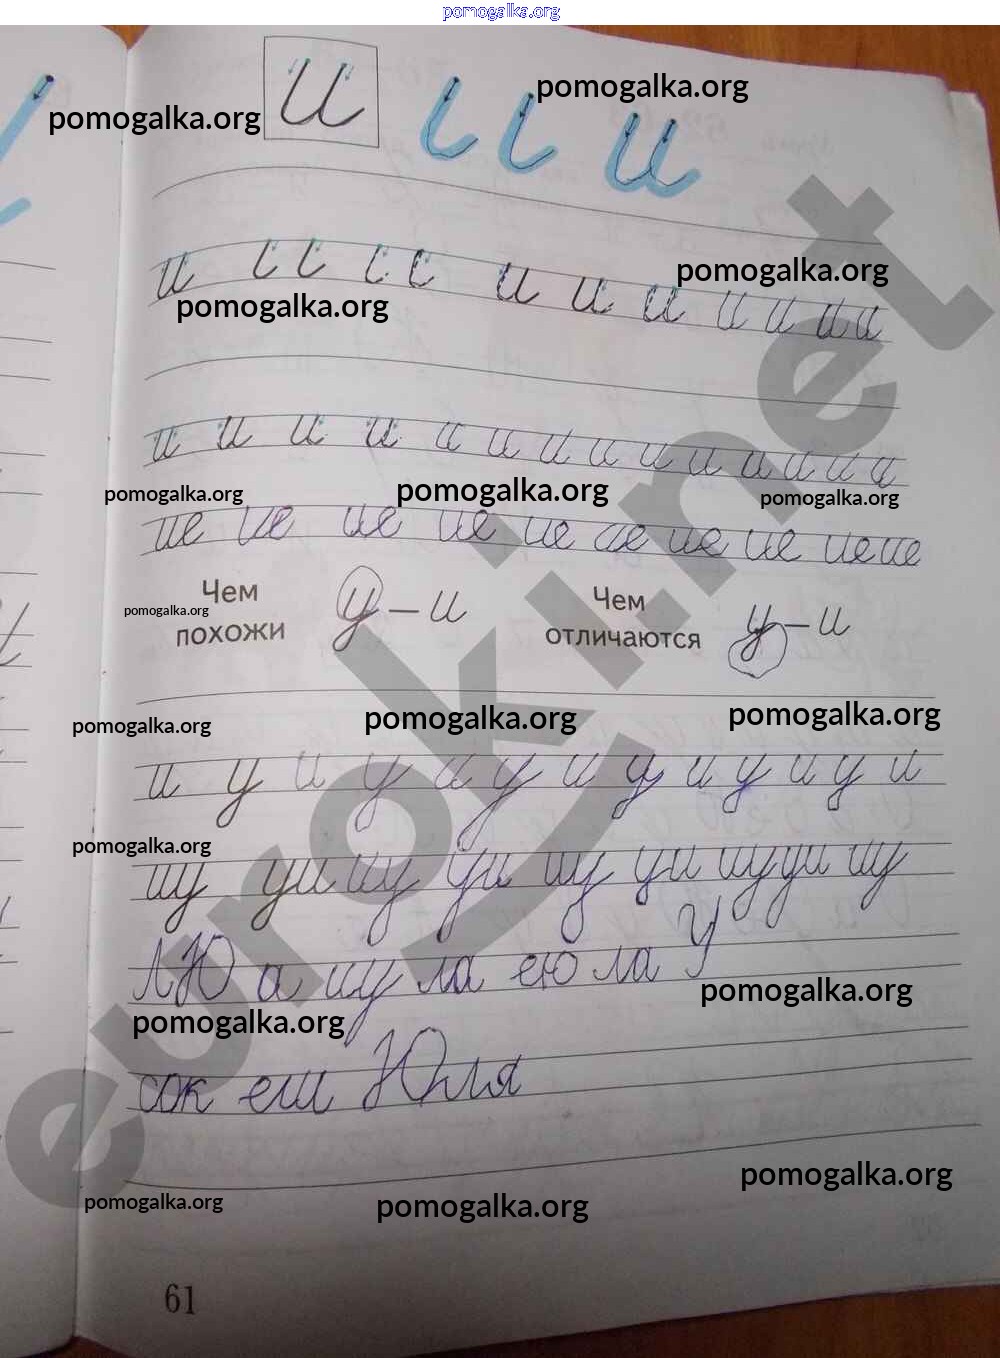 pomogalka.org
и
pomogalka.org pomogalka.org
и
и и и и и и и и и
pomogalka.org
pomogalka.org
и и и и и и и и и и и и и и
pomogalka.org pomogalka.org pomogalka.org
ие ие ие ие ие ие ие ие ие ие
Чем похожи у – и Чем отличаются у – и
pomogalka.org
pomogalka.org pomogalka.org pomogalka.org
и у и у и у и у и у и у и
pomogalka.org
иу уи иу уи иу уи иу уи иу
pomogalka.org
pomogalka.org
Юля
pomogalka.org pomogalka.org pomogalka.org
61
eurokі.net